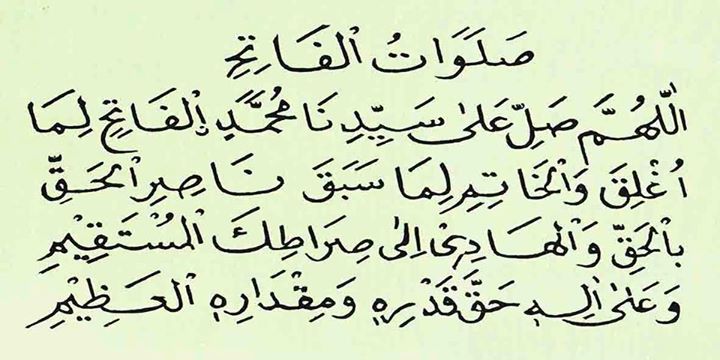 صَلَوَاتُ الْفَاتِحِ
اَللّٰهُمَّ صَلِّ عَلىٰ سَيِّدِنَا مُحَمَّدٍ اِلْفَاتِحِ لِمَا
اُغْلِقَ وَالْخَاتِمِ لِمَا سَبَقَ نَاصِرِ الْحَقِّ
بِالْحَقِّ وَالْهَادِيْ اِلىٰ صِرَاطِكَ الْمُسْتَقِيْمِ
وَعَلىٰ اٰلِهٖ حَقَّ قَدْرِهٖ وَمِقْدَارِهِ الْعَظِيْمِ